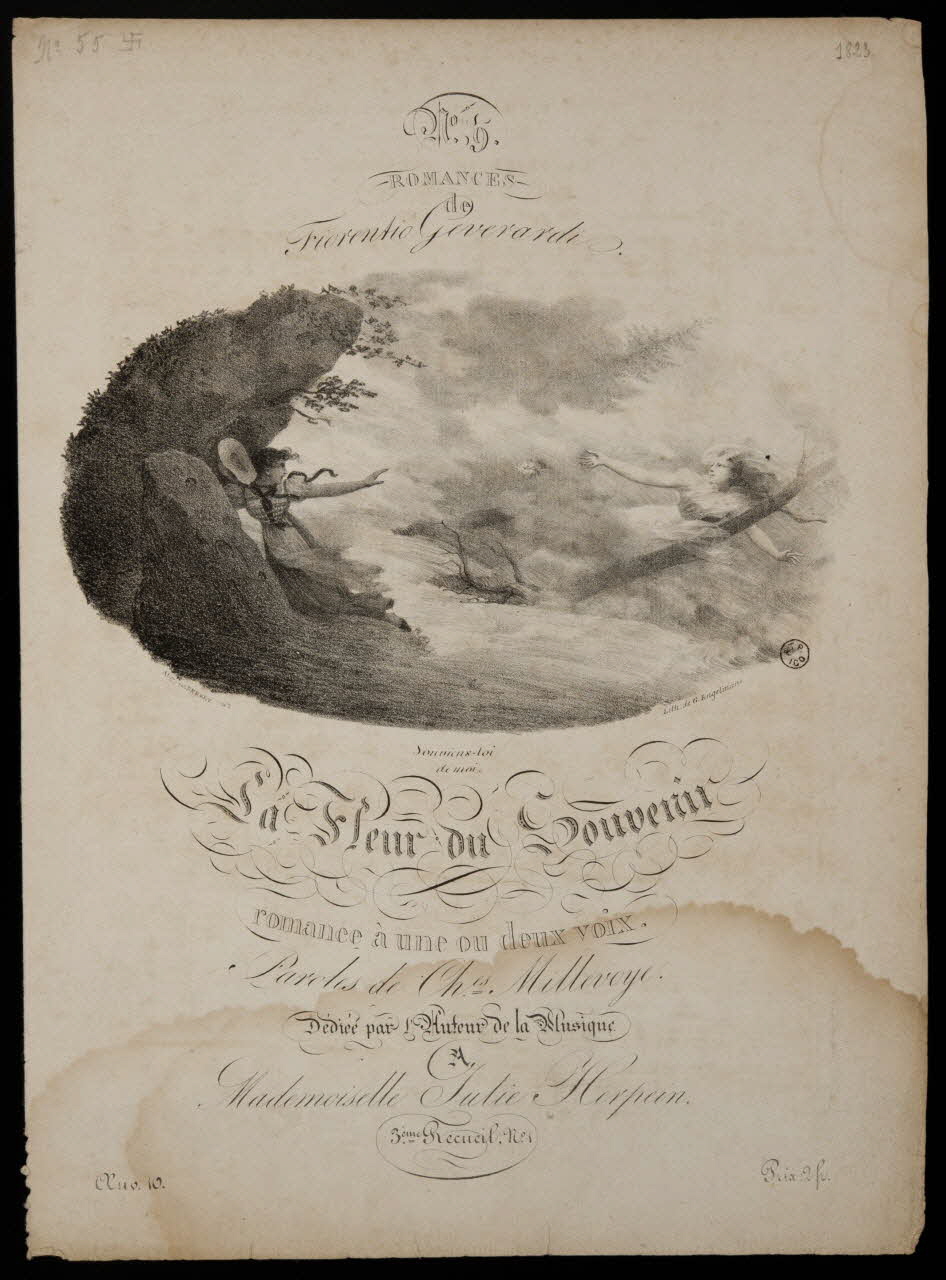 Nº 55 卐
1823
Nº. 5.
ROMANCES
de
Fiorentio Geverardi.
Lith. de G. Engelmann
Souviens-toi
de moi.
La Fleur du Souvenir
romance à une ou deux voix.
Paroles de Ch.es Millevoye.
Dédiée par l'Auteur de la Musique
A
Mademoiselle Julie Herpein.
3.ème Recueil. Nº 1
Œuv. 10.
Prix 2 fr.